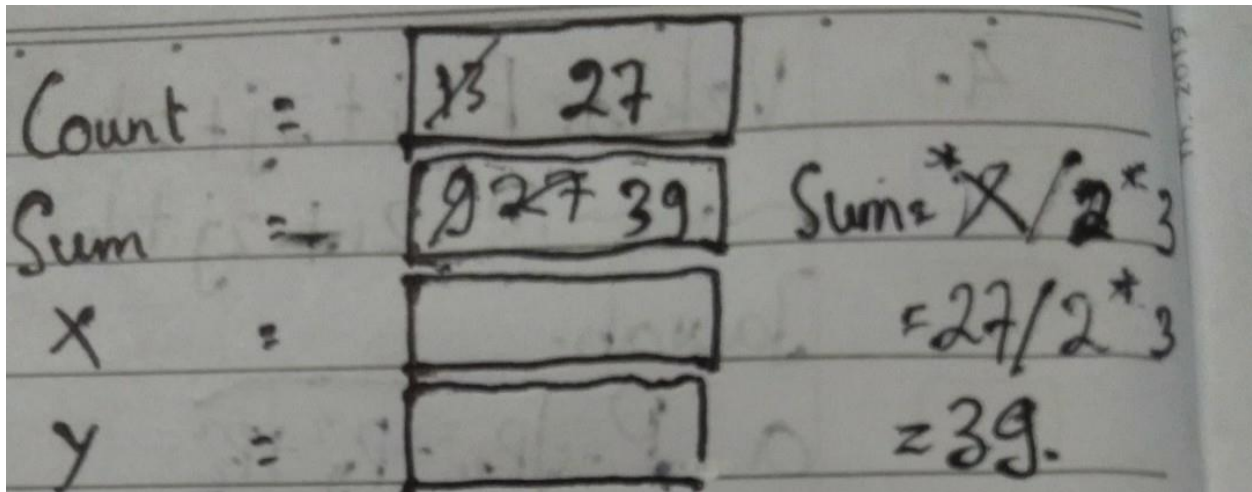 Count = 13 27
Sum = 9 27 39 Sum = *X/2*3
X = = 27/2*3
y = = 39.